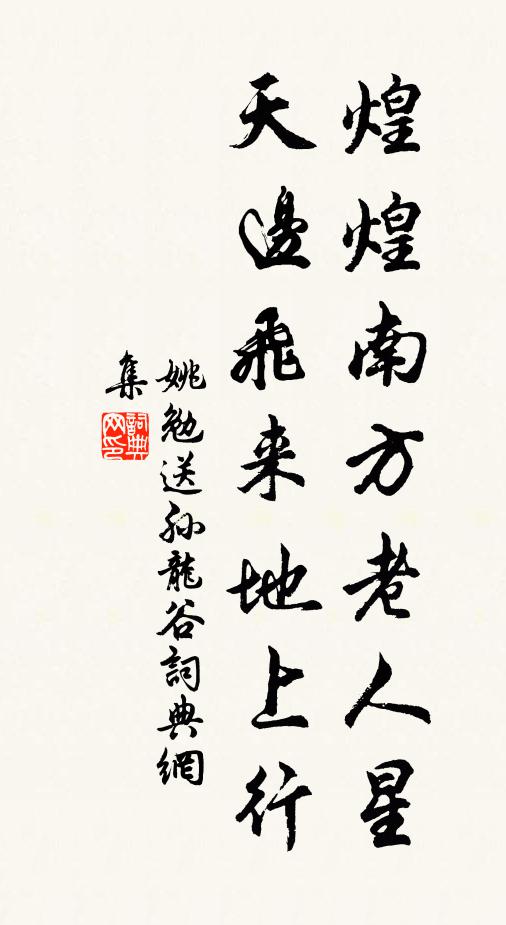 煌煌南方老人星
天邊飛来地上行
姚勉送孙龍谷詞典網
集
詞典网印